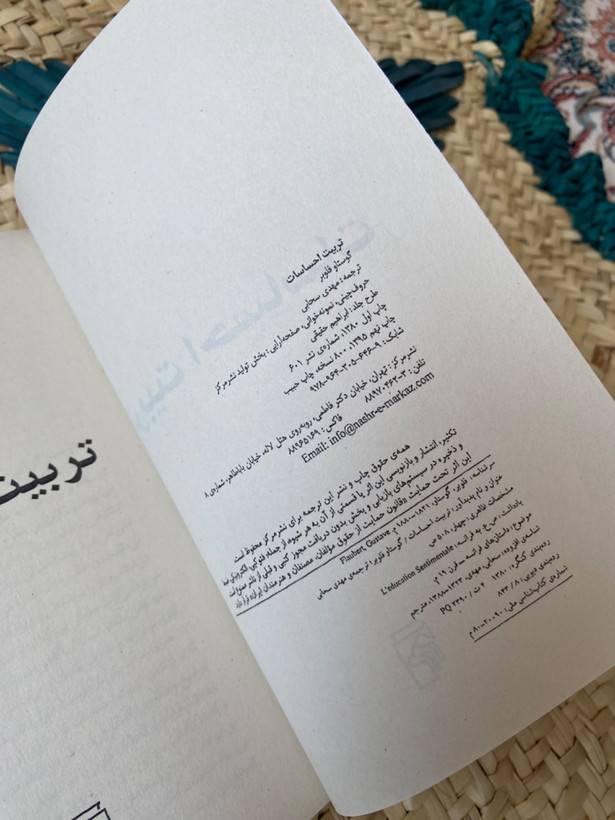 تربیت احساسات
گوستاو فلوبر
ترجمه: مهدی سحابی
حروفچینی، نمونه‌خوانی، صفحه‌آرایی: بخش تولید نشرمرکز
طرح جلد: ابراهیم حقیقی
چاپ اول ۱۳۸۰، شماره‌ی نشر ۶۰۱
چاپ نهم ۱۳۹۵، ۸۰۰ نسخه، چاپ حبیب
شابک: ۹-۶۴۶-۳۰۵-۹۶۴-۹۷۸
نشرمرکز: تهران، خیابان دکتر فاطمی، روبه‌روی هتل لاله، خیابان باباطاهر، شماره‌ی ۸
تلفن: ۳-۸۸۹۷۰۴۶۲ فاکس: ۸۸۹۶۵۱۶۹
Email: info@nashr-e-markaz.com
همه‌ی حقوق چاپ و نشر این ترجمه برای نشرمرکز محفوظ است
تکثیر، انتشار و بازنویسی این اثر یا قسمتی از آن به هر شیوه، از جمله فتوکپی، الکترونیکی، ضبط
و ذخیره در سیستم‌های بازیابی و پخش بدون دریافت مجوز کتبی و قبلی از ناشر ممنوع است
این اثر تحت حمایت «قانون حمایت از حقوق مؤلفان، مصنفان و هنرمندان ایران» قرار دارد
سرشناسه: فلوبر، گوستاو، ۱۸۲۱-۱۸۸۰ م Flaubert, Gustave
عنوان و نام پدیدآور: تربیت احساسات / گوستاو فلوبر؛ ترجمه‌ی مهدی سحابی
مشخصات ظاهری: چهار، ۵۰۸ ص
یادداشت: ص.ع. به فرانسه: L'education Sentimentale
موضوع: داستان‌های فرانسه - قرن ۱۹ م
شناسه‌ی افزوده: سحابی، مهدی، ۱۳۲۲-۱۳۸۸، مترجم
رده‌بندی کنگره: ۱۳۸۰ ۴ ت / PQ ۲۲۹۰
رده‌بندی دیویی: ۸ / ۸۴۳
شماره‌ی کتابشناسی ملی: ۲۰۰۹۰-۸۰ م
تربیت